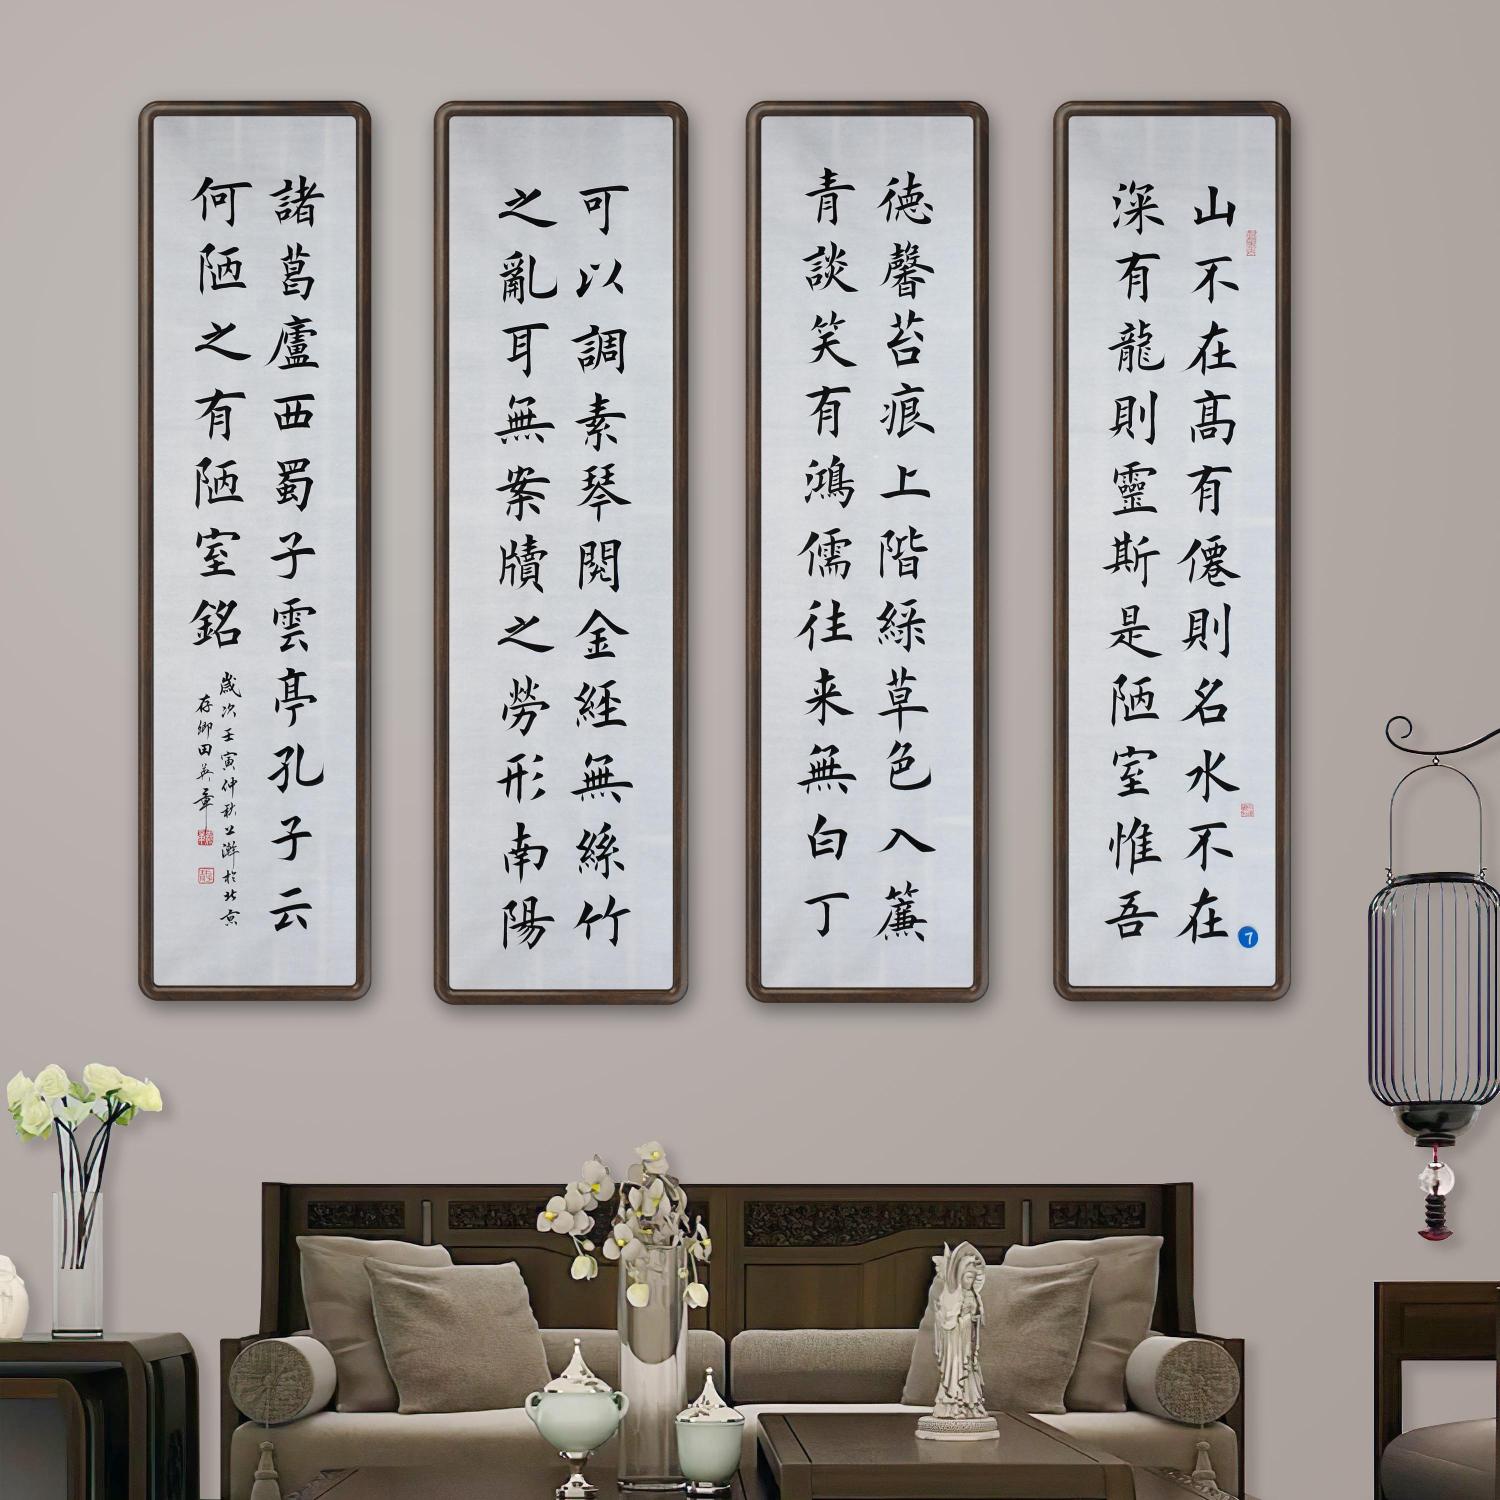 山不在髙有僊則名水不在
深有龍則靈斯是陋室惟吾
7
德馨苔痕上階緑草色入簾
青談笑有鴻儒往来無白丁
可以調素琴閱金經無絲竹
之亂耳無案牘之勞形南陽
諸葛廬西蜀子雲亭孔子云
何陋之有陋室銘
歲次壬寅仲秋上澣於北京
存卿田英章